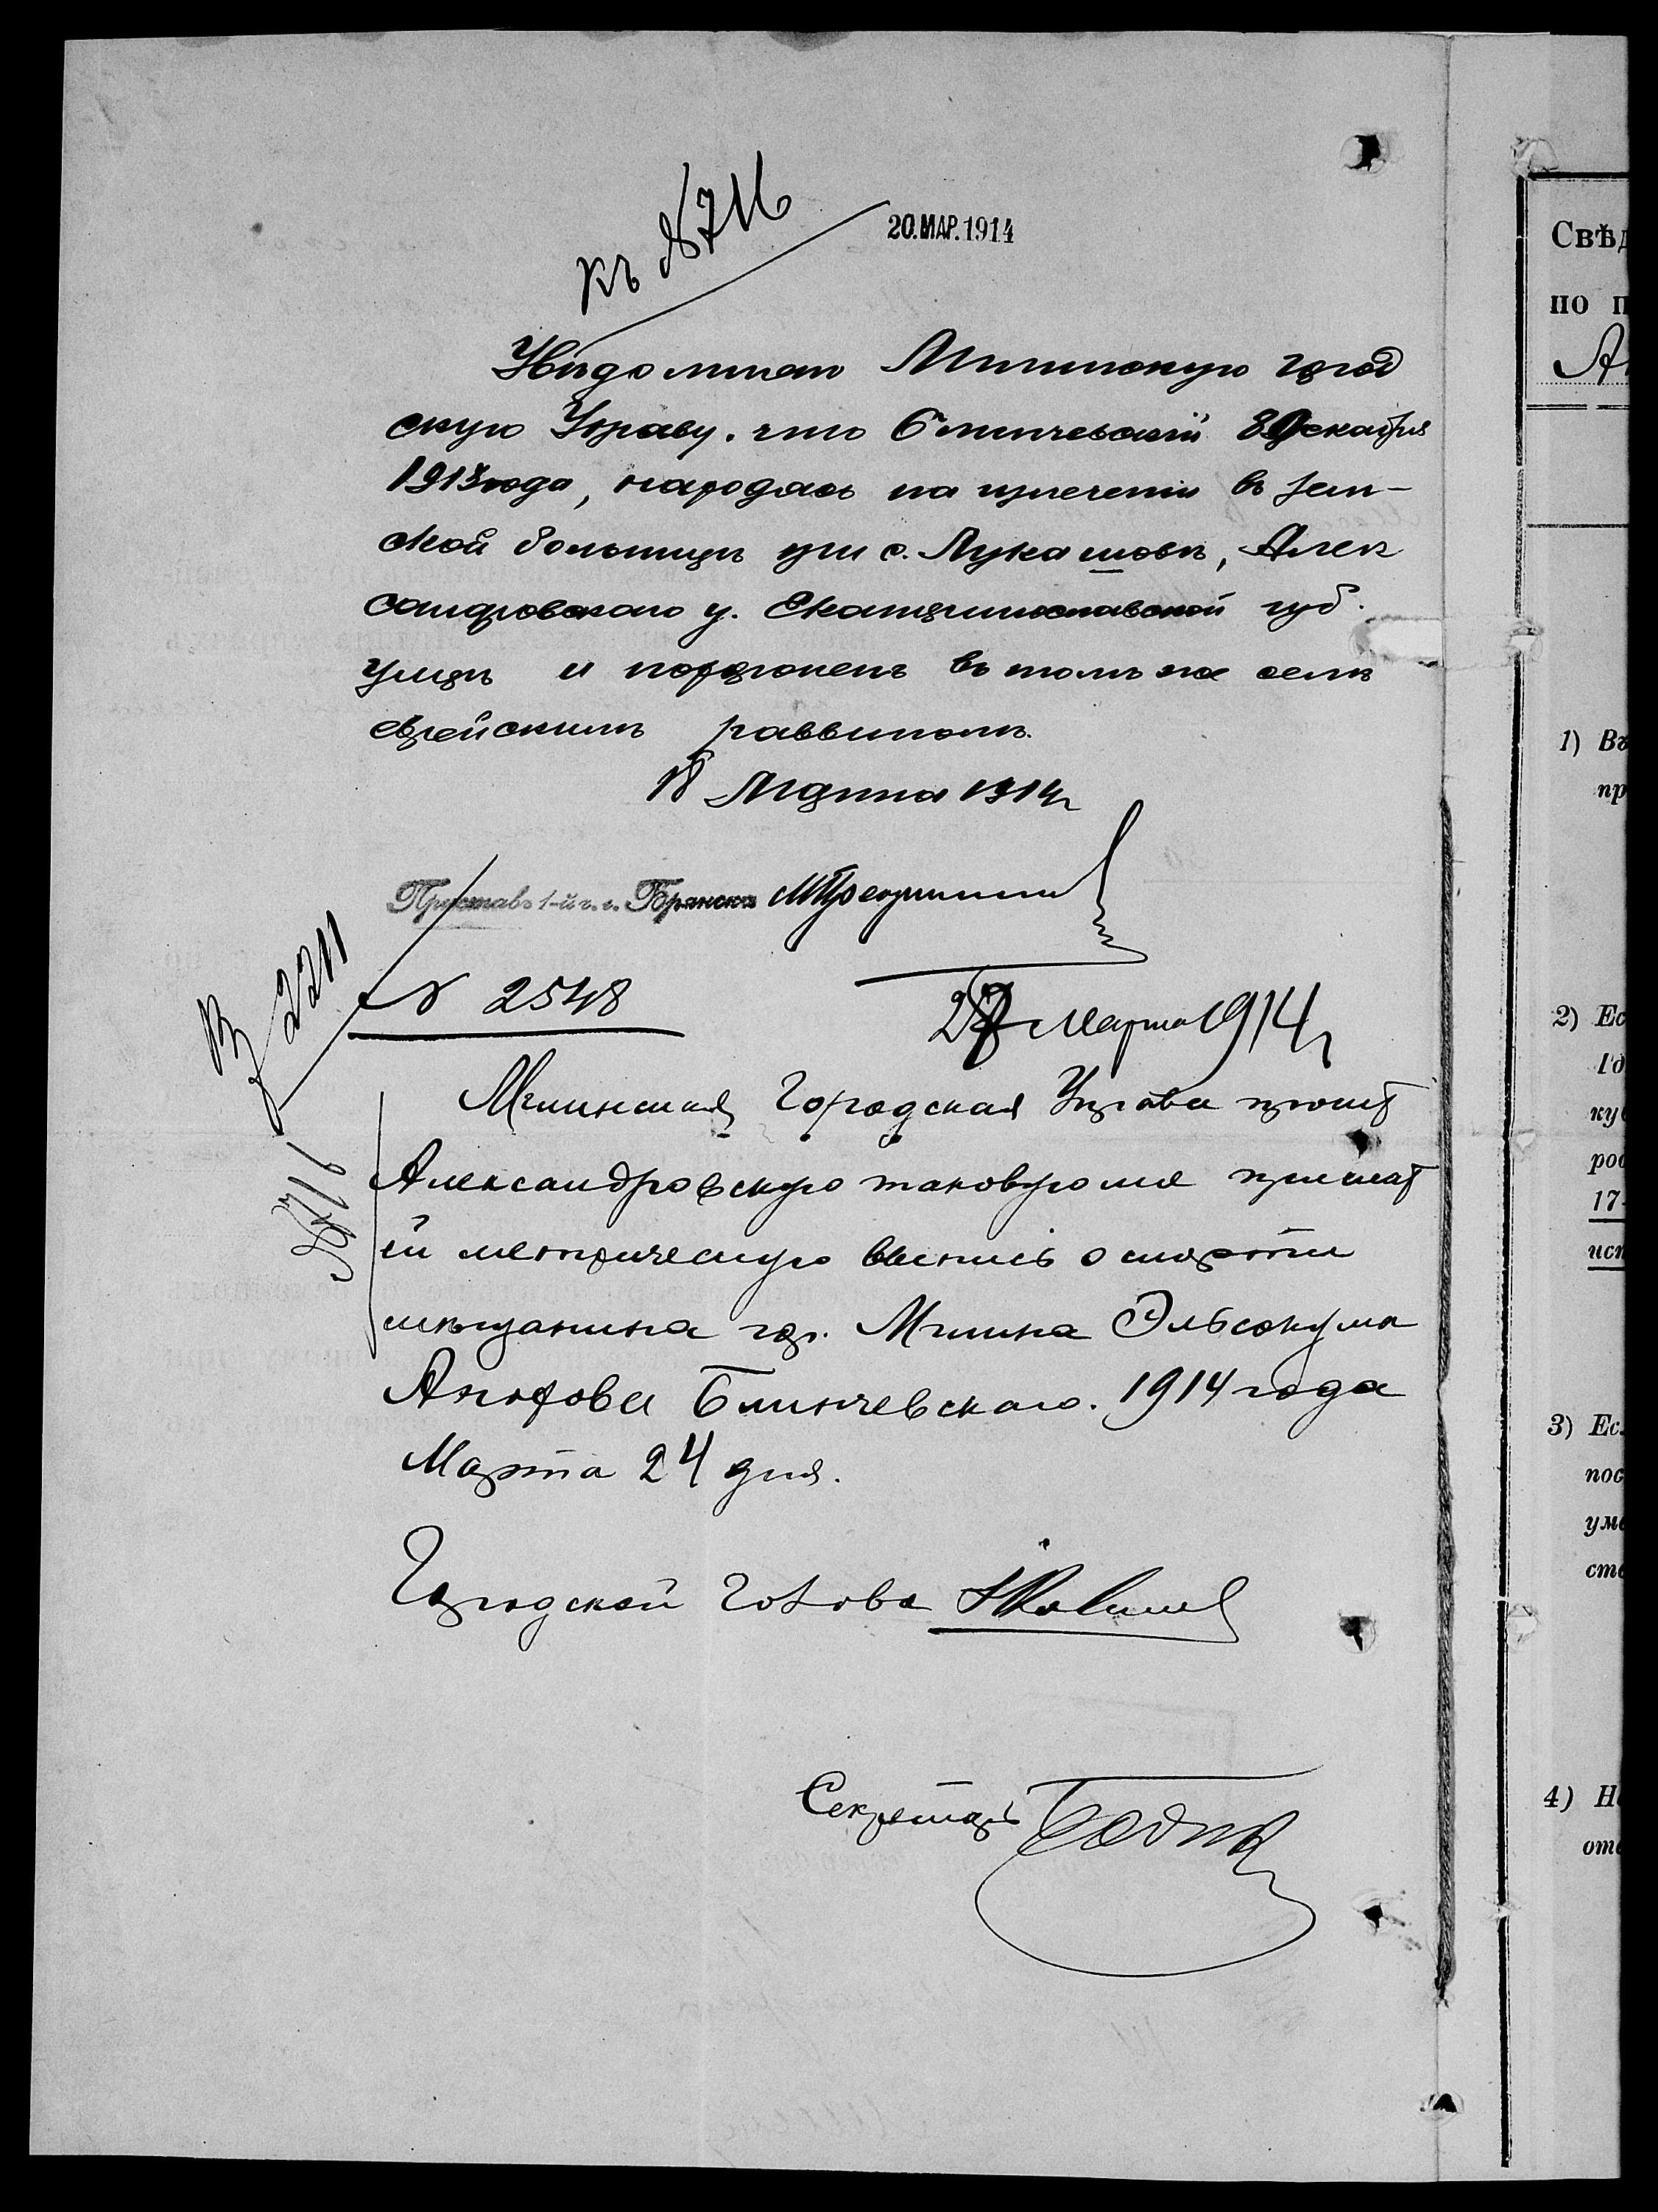 къ №716
20.МАР.1914
Увѣдомляю Мглинскую город
скую Управу, что Блинчевскій 8 Декабря
1913 года, находясь на излеченіи въ зем-
ской больницѣ при с. Лукашовѣ, Алек
сандровскаго у. Екатеринославской губ.
умеръ и похороненъ въ томъ же селѣ
еврейскимъ раввиномъ.
18 Марта 1914 г
Приставъ 1-й ч. г. Брянска
№ 2548
27 Марта 1914 г
В 2211
№716
Мглинская Городская Управа проситъ
Александровскую таковую же прислать
ей метрическую выпись о смерти
мѣщанина гор. Мглина
Блинчевскаго. 1914 года
Марта 24 дня.
Городской Голова
Секретарь
Свѣд
по п
1) Въ
пр
2) Ес
Гд
ку
род
17-
исп
3) Ес
пос
уме
сте
4) Н
отв